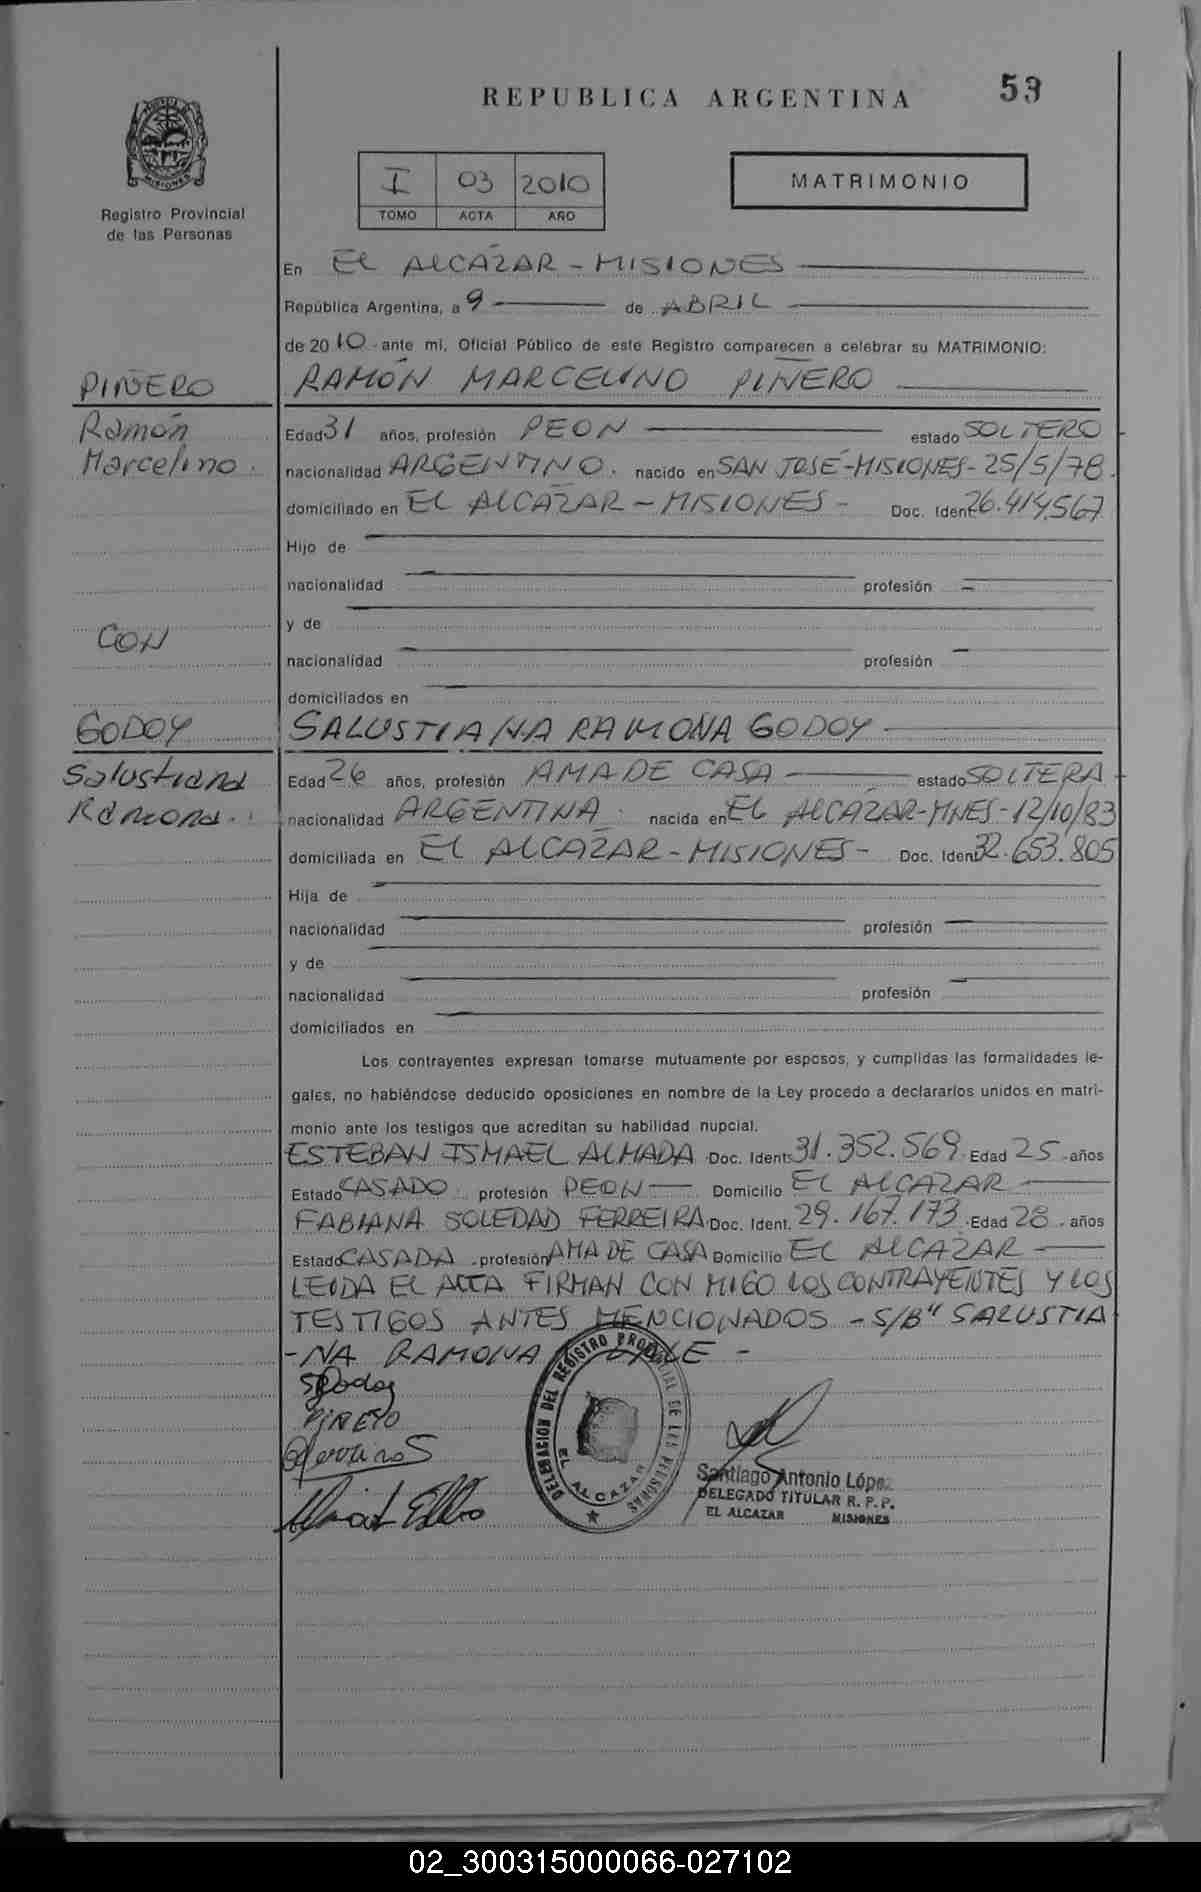 REPUBLICA ARGENTINA
53
MISIONES
Registro Provincial
de las Personas
I 03 2010
TOMO ACTA AÑO
MATRIMONIO
En EL ALCÁZAR - MISIONES
República Argentina, a 9 de ABRIL
de 2010 ante mi, Oficial Público de este Registro comparecen a celebrar su MATRIMONIO:
PIÑERO
RAMÓN MARCELINO PIÑERO
Ramón
Marcelino.
Edad 31 años, profesión PEON estado SOLTERO
nacionalidad ARGENTINO. nacido en SAN JOSÉ-MISIONES- 25/5/78.
domiciliado en EL ALCÁZAR - MISIONES - Doc. Ident. 26.414.567
Hijo de
nacionalidad profesión
y de
CON
nacionalidad profesión
domiciliados en
GODOY
SALUSTIANA RAMONA GODOY
Salustiana
Ramona.
Edad 26 años, profesión AMA DE CASA estado SOLTERA
nacionalidad ARGENTINA. nacida en EL ALCÁZAR-MNES- 12/10/83
domiciliada en EL ALCAZAR-MISIONES- Doc. Ident. 32.653.805
Hija de
nacionalidad profesión
y de
nacionalidad profesión
domiciliados en
Los contrayentes expresan tomarse mutuamente por esposos, y cumplidas las formalidades le-
gales, no habiéndose deducido oposiciones en nombre de la Ley procedo a declararlos unidos en matri-
monio ante los testigos que acreditan su habilidad nupcial.
ESTEBAN ISMAEL ALMADA Doc. Ident. 31.352.569 Edad 25 años
Estado CASADO profesión PEON Domicilio EL ALCAZAR
FABIANA SOLEDAD FERREIRA Doc. Ident. 29.167.173 Edad 28 años
Estado CASADA profesión AMA DE CASA Domicilio EL ALCAZAR
LEIDA EL ACTA FIRMAN CON MIGO LOS CONTRAYENTES Y LOS
TESTIGOS ANTES MENCIONADOS - S/B" SALUSTIA
-NA RAMONA" VALE -
DELEGACION DEL REGISTRO PROVINCIAL DE LAS PERSONAS
EL ALCAZAR
Santiago Antonio López
DELEGADO TITULAR R. P. P.
EL ALCAZAR MISIONES
02_300315000066-027102